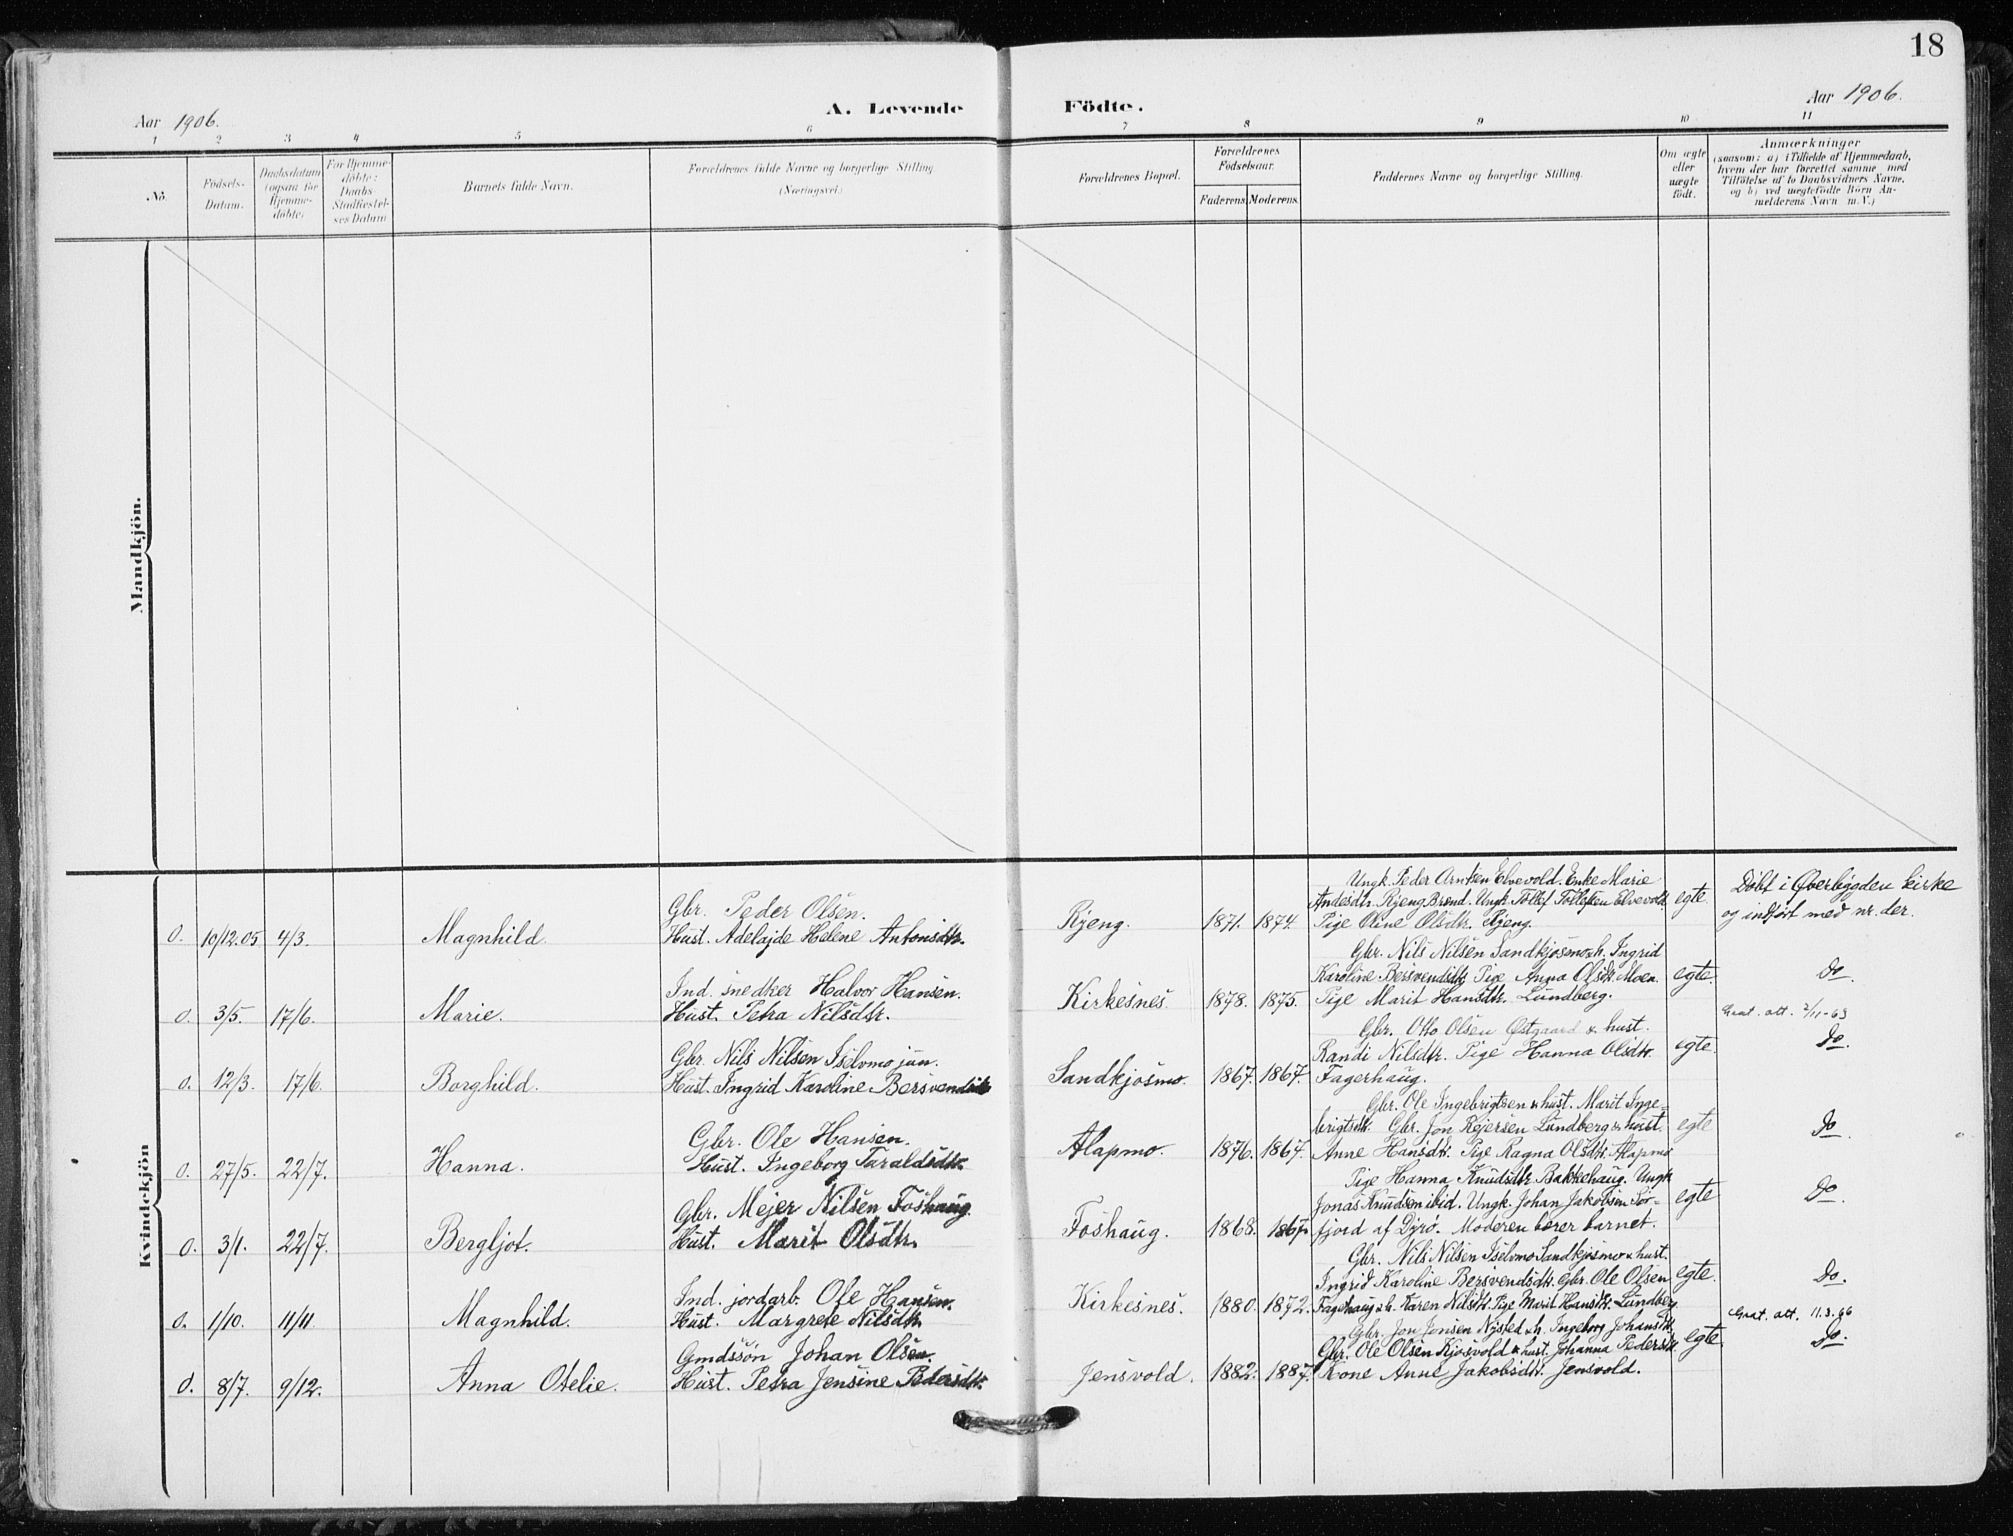 18
Aar 1906. A. Levende Födte. Aar 1906.
1 2 3 4 5 6 7 8 9 10 11
No. Födsels-Datum. Daabsdatum (ogsaa for Hjemme-döbte) For Hjemme-döbte: Daabs-Stadfæstel-ses Datum Barnets fulde Navn. Forældrenes fulde Navne og borgerlige Stilling (Næringsvei.) Forældrenes Bopæl. Forældrenes Födselsaar. Faderens. Moderens. Faddernes Navne og borgerlige Stilling. Om ægte eller uægte födt.
Anmærkninger
(saasom: a) i Tilfælde af Hjemmedaab,
hvem der har forrettet samme med
Tilföielse af to Daabsvidners Navne,
og b) ved uægtefödte Börn An-
melderens Navn m. V.)
Mandkjön.
Kvindekjön
0. 10/12.05 4/3. Magnhild.
Gbr. Peder Olsen.
Hust. Adelajde Helene Antonsdtr.
Rjeng. 1871. 1874.
Ungk. Peder Arntsen Elvevold. Enke Marie
Andesdtr. Rjeng Brend. Ungk. Tollef Tollefsen Elvevold.
Pige Oline Olsdtr. Rjeng.
egte.
Döbt i Øverbygden kirke
og indført med nr. der.
0. 3/5. 17/6. Marie.
Ind. snedker Halvor Hansen.
Hust. Petra Nilsdtr.
Kirkesnes 1878. 1875.
Gbr. Nils Nilsen Sandkjosmo & h. Ingrid
Karoline Bersvendsdtr. Pige Anna Olsdtr. Moen.
Pige Marit Hansdtr. Lundberg.
egte.
Do.
Grat. att. 2/11-63
0. 12/3. 17/6. Borghild.
Gbr. Nils Nilsen Iselvmo jun.
Hust. Ingrid Karoline Bersvendsdtr
Sandkjosmo. 1867. 1867.
Gbr. Otto Olsen Østgaard & hust.
Randi Nilsdtr. Pige Hanna Olsdtr.
Fagerhaug.
egte.
Do.
0. 27/5. 22/7. Hanna.
Gbr. Ole Hansen.
Hust. Ingeborg Taraldsdtr.
Alapmo. 1876. 1867.
Gbr. Ole Ingebrigtsen & hust. Marit Inge-
brigtsdtr. Gbr. Jon Rejersen Lundberg & hust.
Anne Hansdtr. Pige Ragna Olsdtr. Alapmo
egte
Do.
0. 3/1. 22/7. Bergljot.
Gbr. Mejer Nilsen Foshaug.
Hust. Marit Olsdtr.
Foshaug. 1868. 1867.
Pige Hanna Knudsdtr Bakkehaug. Ungk
Jonas Knudsen ibid. Ungk. Johan Jakobsen Sör-
fjord af Dyrö. Moderen bærer barnet.
egte
Do.
0. 1/10. 11/11. Magnhild.
Ind. jordarb. Ole Hansen.
Hust. Margrete Nilsdtr.
Kirkesnes. 1880. 1872.
Gbr. Nils Nilsen Iselvmo Sandkjosmo & hust.
Ingrid Karoline Bersvendsdtr. Gbr. Ole Olsen
Fagerhaug & h. Karen Nilsdtr. Pige Marit Hansdtr. Lundberg
egte.
Do.
Grat. att. 11.3.66
0. 8/7. 9/12. Anna Otelie.
Gmdssön Johan Olsen.
Hust. Petra Jensine Pedersdtr.
Jensvold. 1882. 1887.
Gbr. Jon Jonsen Nysted & h. Ingeborg Johansdtr
Gbr. Ole Olsen Kjosvold & hust. Johanna Pedersdtr
Kone Anne Jakobsdtr. Jensvold.
egte.
Do.